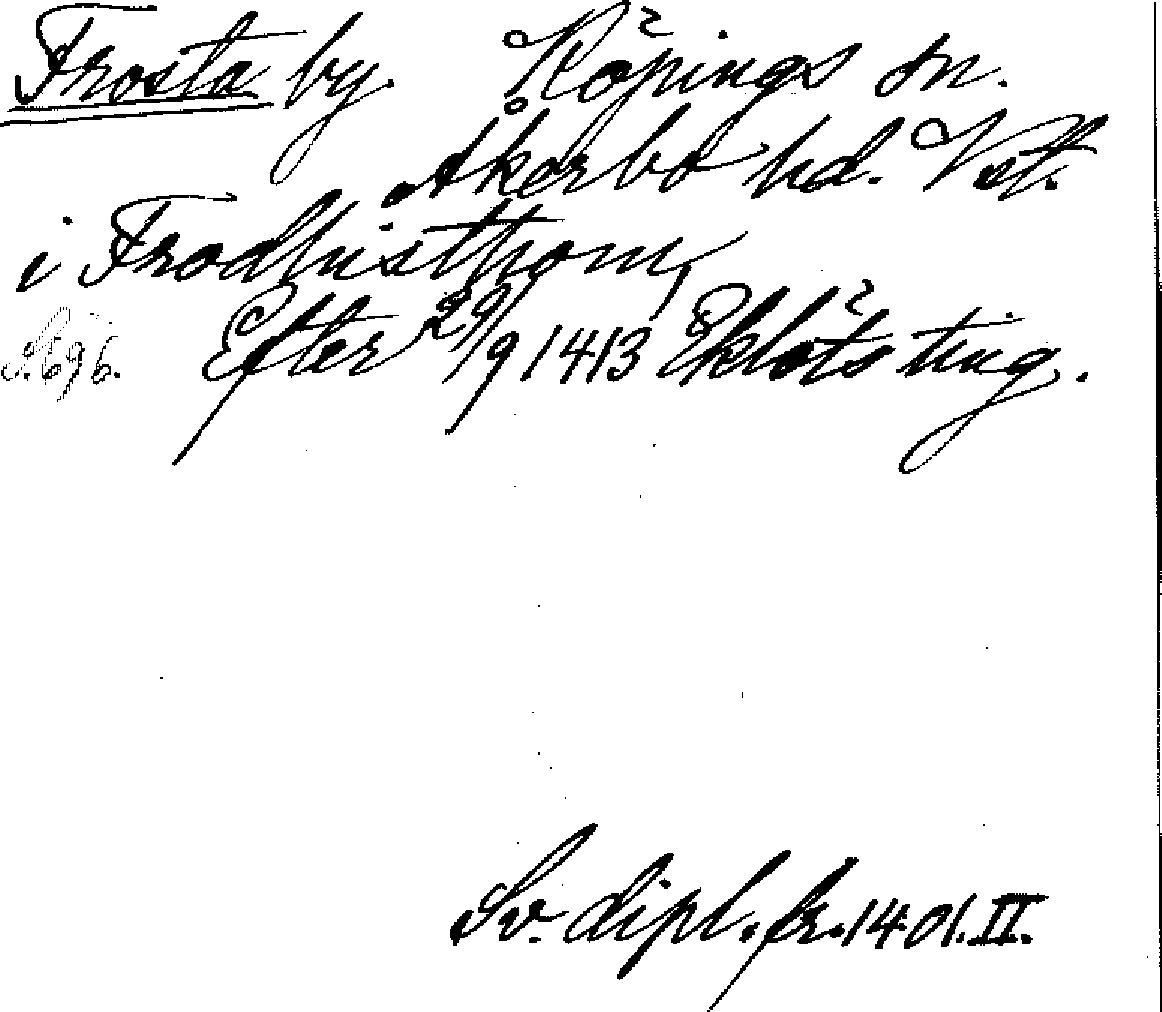 Frosta by. Köpings sn.
Åkerbo hd. Vstm.
i Frodhisthom,
S. 696. Efter 29/9 1413 Eklöts ting.
Sv. dipl. fr. 1401. II.